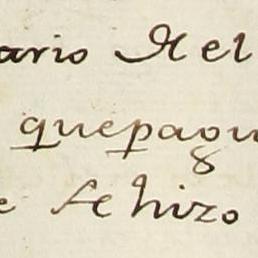 ario Rel
quepagu
e se hizo